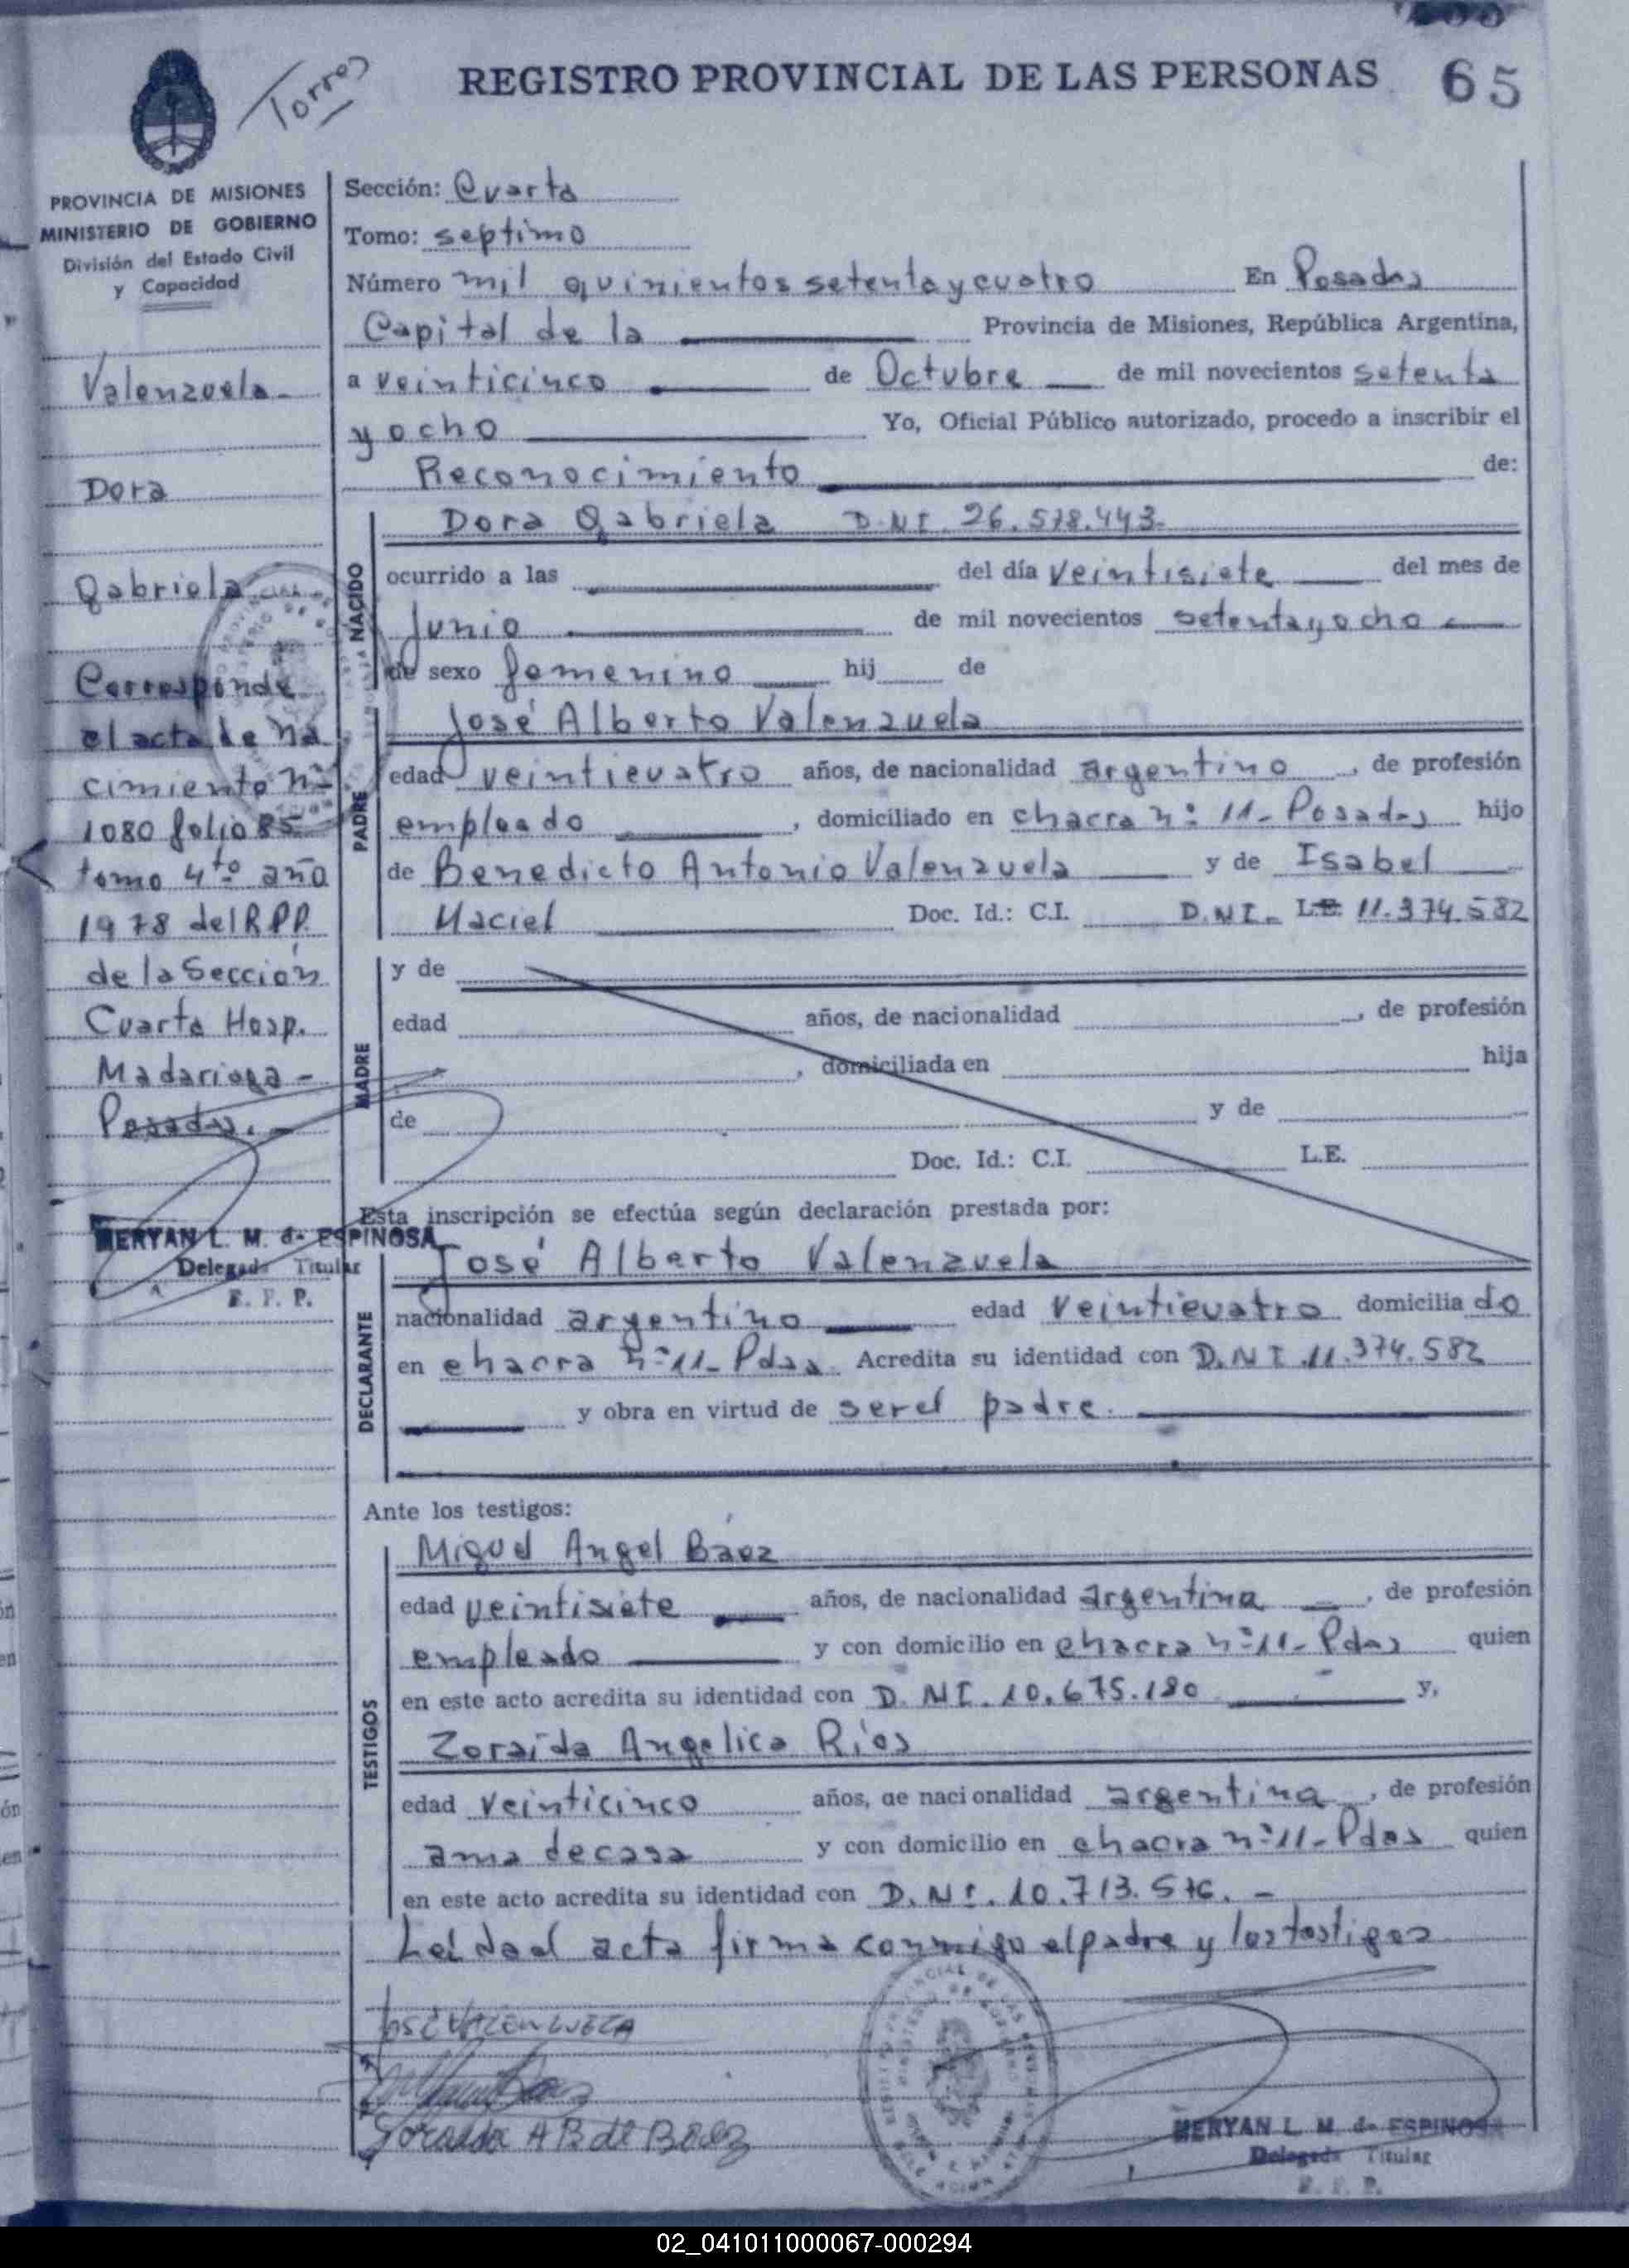 Torres
REGISTRO PROVINCIAL DE LAS PERSONAS 65
PROVINCIA DE MISIONES
MINISTERIO DE GOBIERNO
División del Estado Civil
y Capacidad
Valenzuela
Dora
Gabriela
Corresponde
el acta de na
cimiento nº
1080 folio 85
tomo 4to año
1978 del R.P.P.
de la Sección
Cuarta Hosp.
Madariaga -
Posadas. -
MERYAN L. M. de ESPINOSA
Delegada Titular
R. P. P.
Sección: Cuarta
Tomo: septimo
Número mil quinientos setenta y cuatro En Posadas
Capital de la Provincia de Misiones, República Argentina,
a veinticinco de Octubre de mil novecientos setenta
y ocho Yo, Oficial Público autorizado, procedo a inscribir el
Reconocimiento de:
NACIDO
Dora Gabriela D.N.I. 26.578.443.
ocurrido a las del día veintisiete del mes de
Junio de mil novecientos setenta y ocho
de sexo femenino hij de
PADRE
José Alberto Valenzuela
edad veinticuatro años, de nacionalidad argentino, de profesión
empleado, domiciliado en chacra nº 11- Posadas hijo
de Benedicto Antonio Valenzuela y de Isabel
Maciel Doc. Id.: C.I. D.N.I. L.E. 11.374.582
MADRE
y de
edad años, de nacionalidad , de profesión
, domiciliada en hija
de y de
Doc. Id.: C.I. L.E.
Esta inscripción se efectúa según declaración prestada por:
DECLARANTE
José Alberto Valenzuela
nacionalidad argentino edad veinticuatro domicilia do
en chacra nº 11- Pdas Acredita su identidad con D.N.I. 11.374.582
y obra en virtud de ser el padre.
Ante los testigos:
TESTIGOS
Miguel Angel Báez
edad veintisiete años, de nacionalidad argentina, de profesión
empleado y con domicilio en chacra nº 11- Pdas quien
en este acto acredita su identidad con D.N.I. 10.675.180 y,
Zoraida Angelica Ríos
edad veinticinco años, de nacionalidad argentina, de profesión
ama de casa y con domicilio en chacra nº 11- Pdas quien
en este acto acredita su identidad con D.N.I. 10.713.576. -
Leida el acta firma conmigo el padre y los testigos
JOSE VALENZUELA
Soraida A R de Baez
MERYAN L. M. de ESPINOSA
Delegada Titular
R. P. P.
02_041011000067-000294